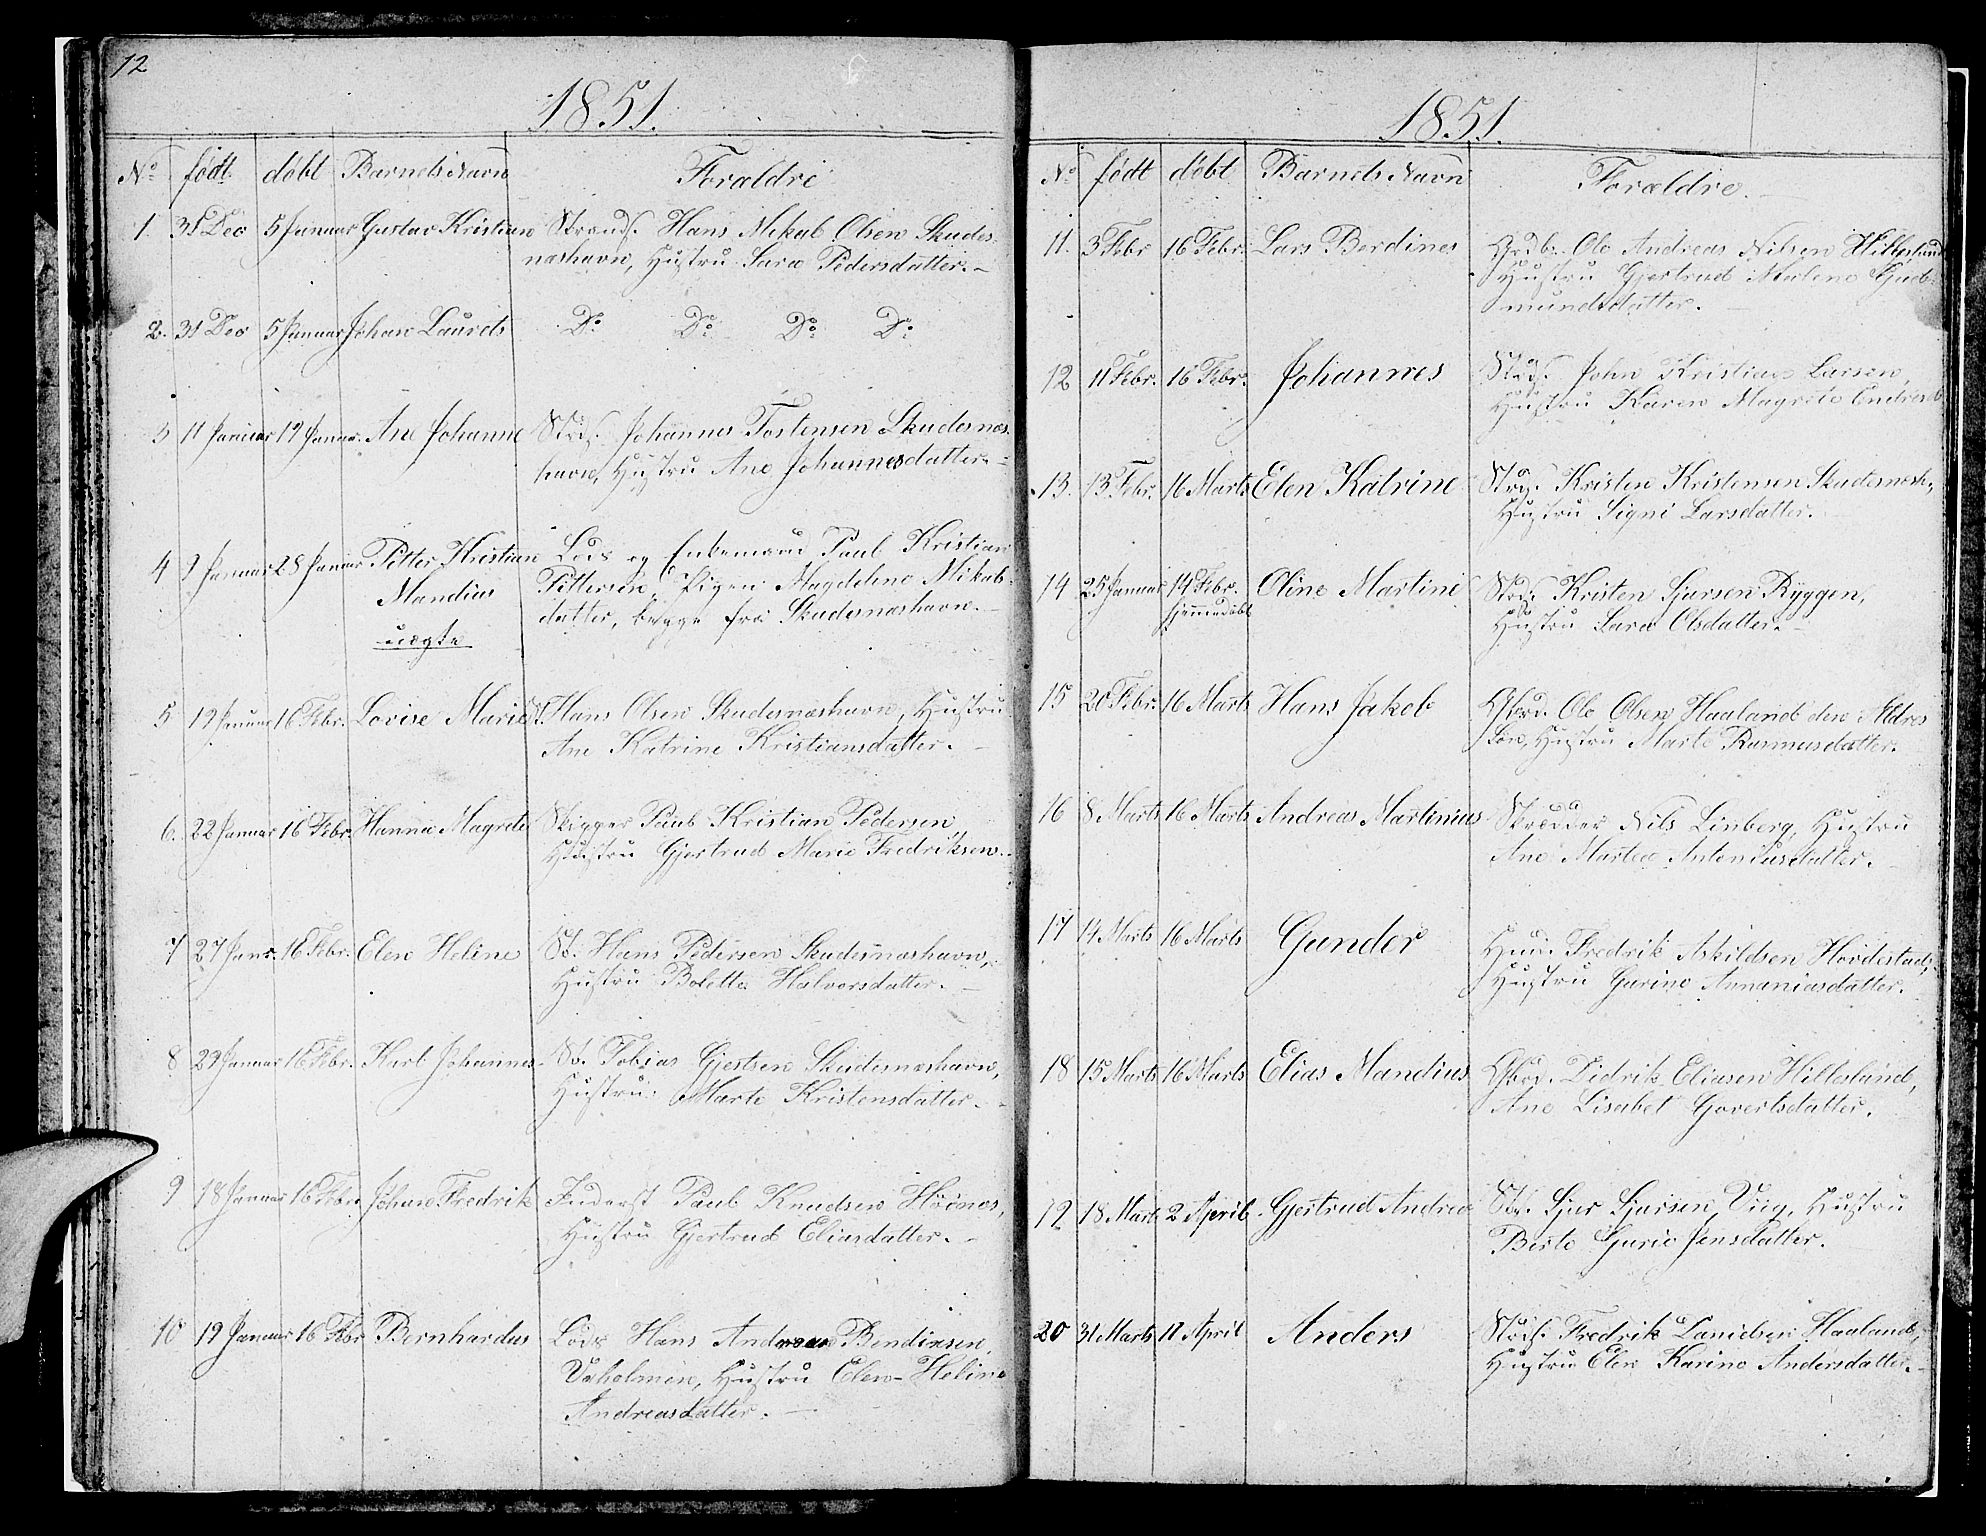 12
1851.
No født døbt Barnets Navn Forældre
1. 31 Dec 5 Januar Gustav Kristian Strands. Hans Mikal Olsen Skudes-
neshavn, Hustru Sara Pedersdatter.
2. 31 Dec 5 Januar Johan Laurets Do Do Do Do
3 11 Januar 19 Januar. Ane Johanne Stds. Johannes Tostensen Skudesnæs-
havn, Hustru Ane Johannesdatter.
4 9 Januar 28 Januar Petter Kristian Lods og Enkemand Paul Kristian
Mandius Pettersen, Pigen Magdelene Mikals-
uægte datter, begge fra Skudesnæshavn.
5 19 Januar 16 Febr. Lovise Marie St. Hans Olsen Skudesnæshavn, Hustru
Ane Katrine Kristiansdatter.
6. 22 Januar 16 Febr. Hanna Magrete Skipper Paul Kristian Pedersen,
Hustru Gjertrud Marie Fredriksen.
7 27 Janr. 16 Febr. Elen Heline St. Hans Pedersen Skudesnæshavn,
Hustru Bolette Halvorsdatter.
8 29 Januar 16 Febr. Karl Johannes St. Tobias Gjertsen Skudesnæshavn,
Hustru Marte Kristensdatter.
9 18 Januar 16 Febr. Johan Fredrik Inderst Paul Knudsen Høines,
Hustru Gjertrud Eliasdatter.
10 19 Januar 16 Febr Bernhardus Lods Hans Andreas Bendixsen,
Vaholmen, Hustru Elen Heline
Andreasdatter.
1851
No født døbt Barnets Navn Forældre.
11. 3 Febr 16 Febr. Lars Berdines Grdb. Ole Andreas Nilsen Hillesland
Hustru Gjertrud Malene Gud-
mundsdatter.
12 11 Febr. 16 Febr. Johannes Stds. John Kristian Larsen,
Hustru Karen Magrete Endresd
13. 13 Febr. 16 Marts Elen Katrine Stds. Kristen Kristensen Skudesnæsh.,
Hustru Signi Larsdatter.
14 25 Januar 14 Febr. Oline Martine Stds. Kristen Sjursen Ryggen,
hjemmedøbt Hustru Sara Olsdatter.
15 20 Febr. 16 Marts Hans Jakob Gbrd. Ole Olsen Haaland den Ældres
Søn, Hustru Marte Rasmusdatter.
16 8 Marts 16 Marts Andreas Martinius Skrædder Nils Linberg, Hustru
Ane Martea Antoniusdatter.
17 14 Marts 16 Marts Gunder Huus. Fredrik Askildsen Hovdestad,
Hustru Gurine Annaniasdatter.
18 15 Marts 16 Marts Elias Mandius Gbrd. Didrik Eliasen Hillesland,
Ane Lisabet Govertsdatter.
19 18 Marts 2 April Gjertrud Andrea Stds. Sjur Sjursen Viig, Hustru
Berte Gurie Jensdatter.
20 31 Marts 11 April Anders Stds. Fredrik Danielsen Haaland,
Hustru Elen Karine Andersdatter.